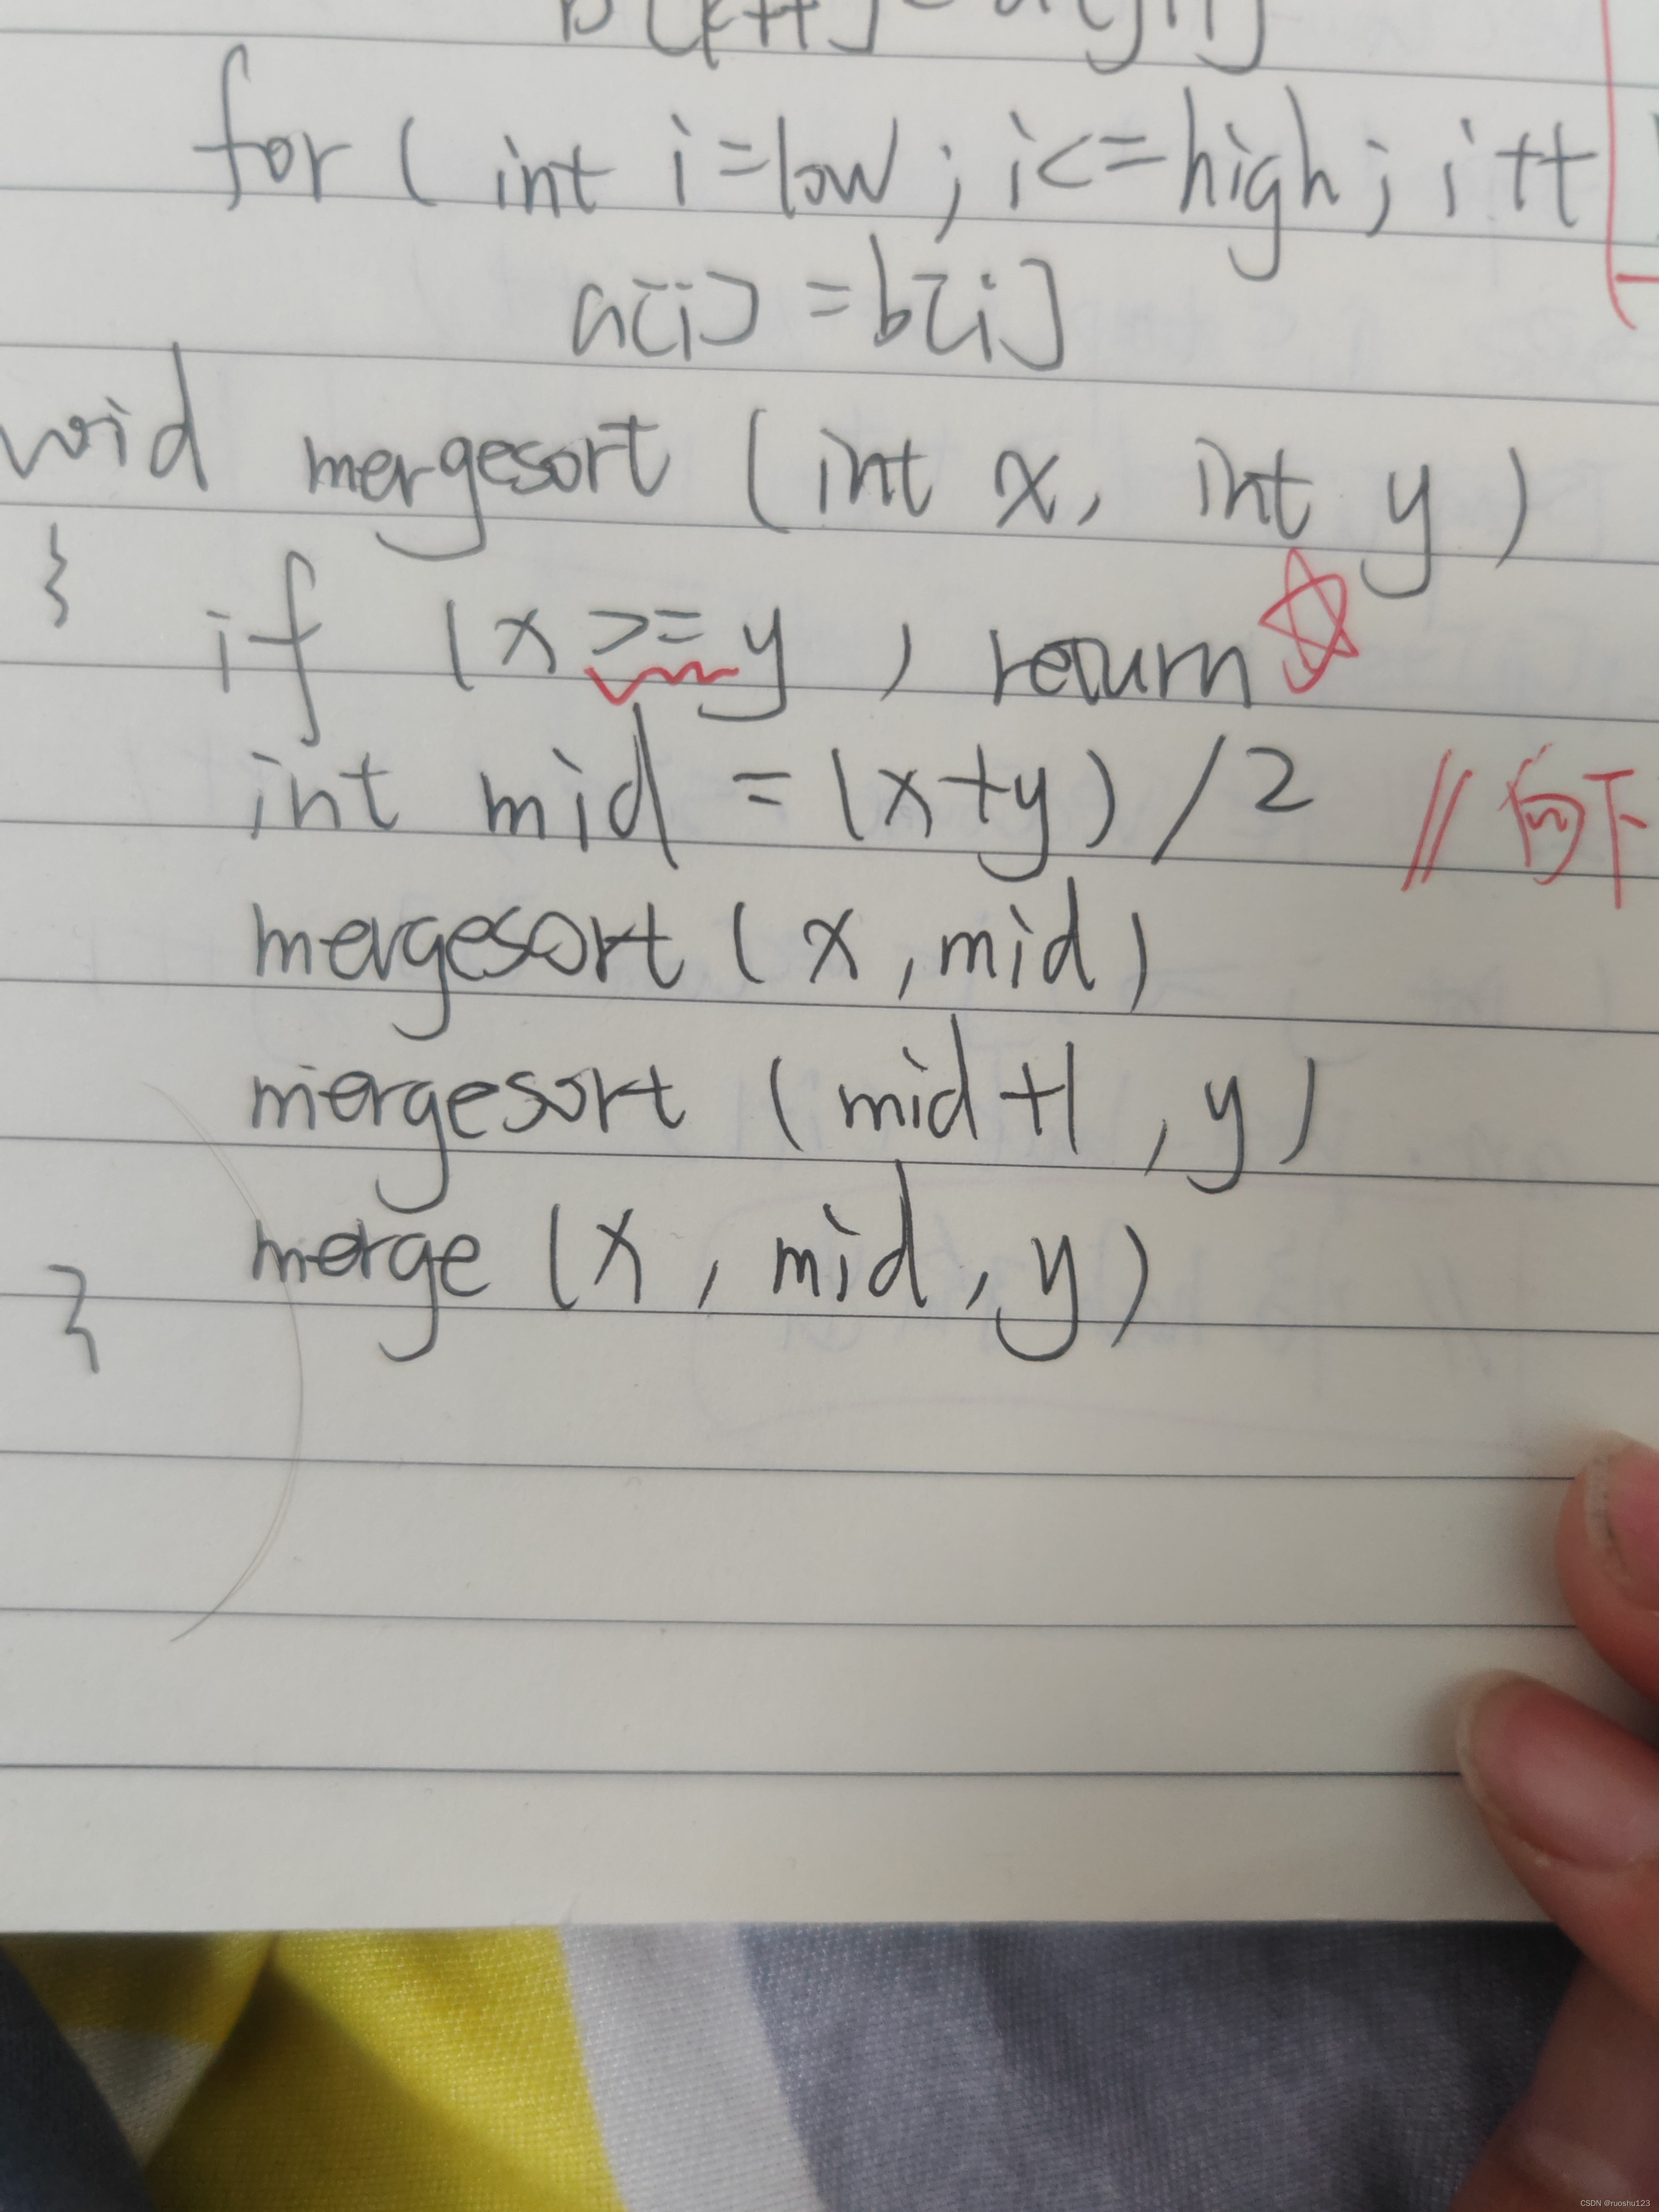 for ( int i=low ; i<=high ; i++
a[i] = b[i]
void mergesort (int x, int y )
{
if (x >= y ) return
int mid = (x+y) /2 // 向下
mergesort ( x , mid)
mergesort ( mid+1 , y )
merge (x , mid , y )
}
CSDN @ruoshu123